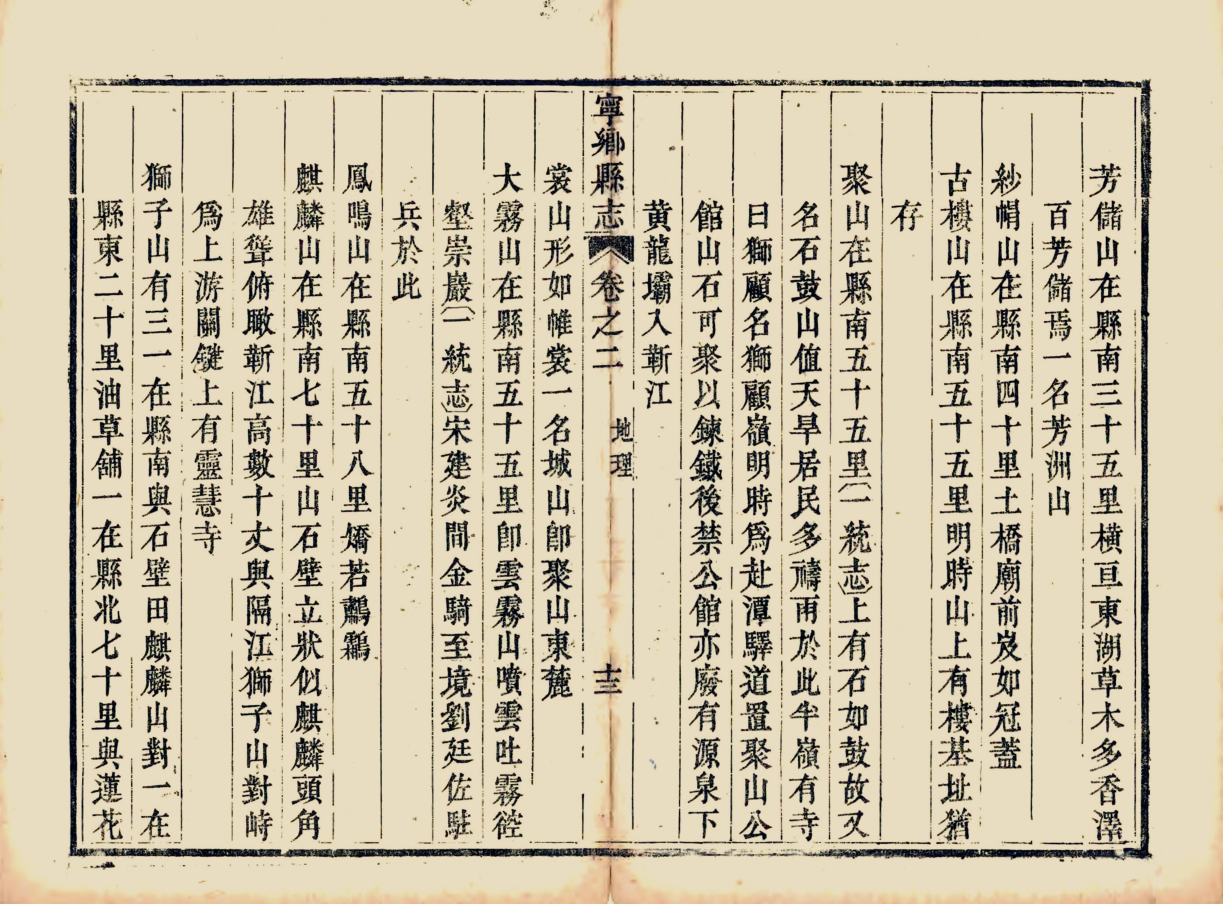 芳儲山在縣南三十五里橫亘東湖草木多香澤
百芳儲焉一名芳洲山
紗帽山在縣南四十里土橋廟前岌如冠蓋
古樓山在縣南五十五里明時山上有樓基址猶
存
聚山在縣南五十五里(一統志)上有石如鼓故又
名石鼓山值天旱居民多禱雨於此半嶺有寺
曰獅顧名獅顧嶺明時爲赴潭驛道置聚山公
館山石可聚以鍊鐵後禁公館亦廢有源泉下
黃龍壩入靳江
寧鄉縣志 卷之二 地理 十三
裳山形如帷裳一名城山卽聚山東麓
大霧山在縣南五十五里卽雲霧山噴雲吐霧峵
壑崇巖(一統志)宋建炎間金騎至境劉廷佐駐
兵於此
鳳鳴山在縣南五十八里嬌若鸑鷟
麒麟山在縣南七十里山石壁立狀似麒麟頭角
雄聳俯瞰靳江高數十丈與隔江獅子山對峙
爲上游關鍵上有靈慧寺
獅子山有三一在縣南與石壁田麒麟山對一在
縣東二十里油草舖一在縣北七十里與蓮花